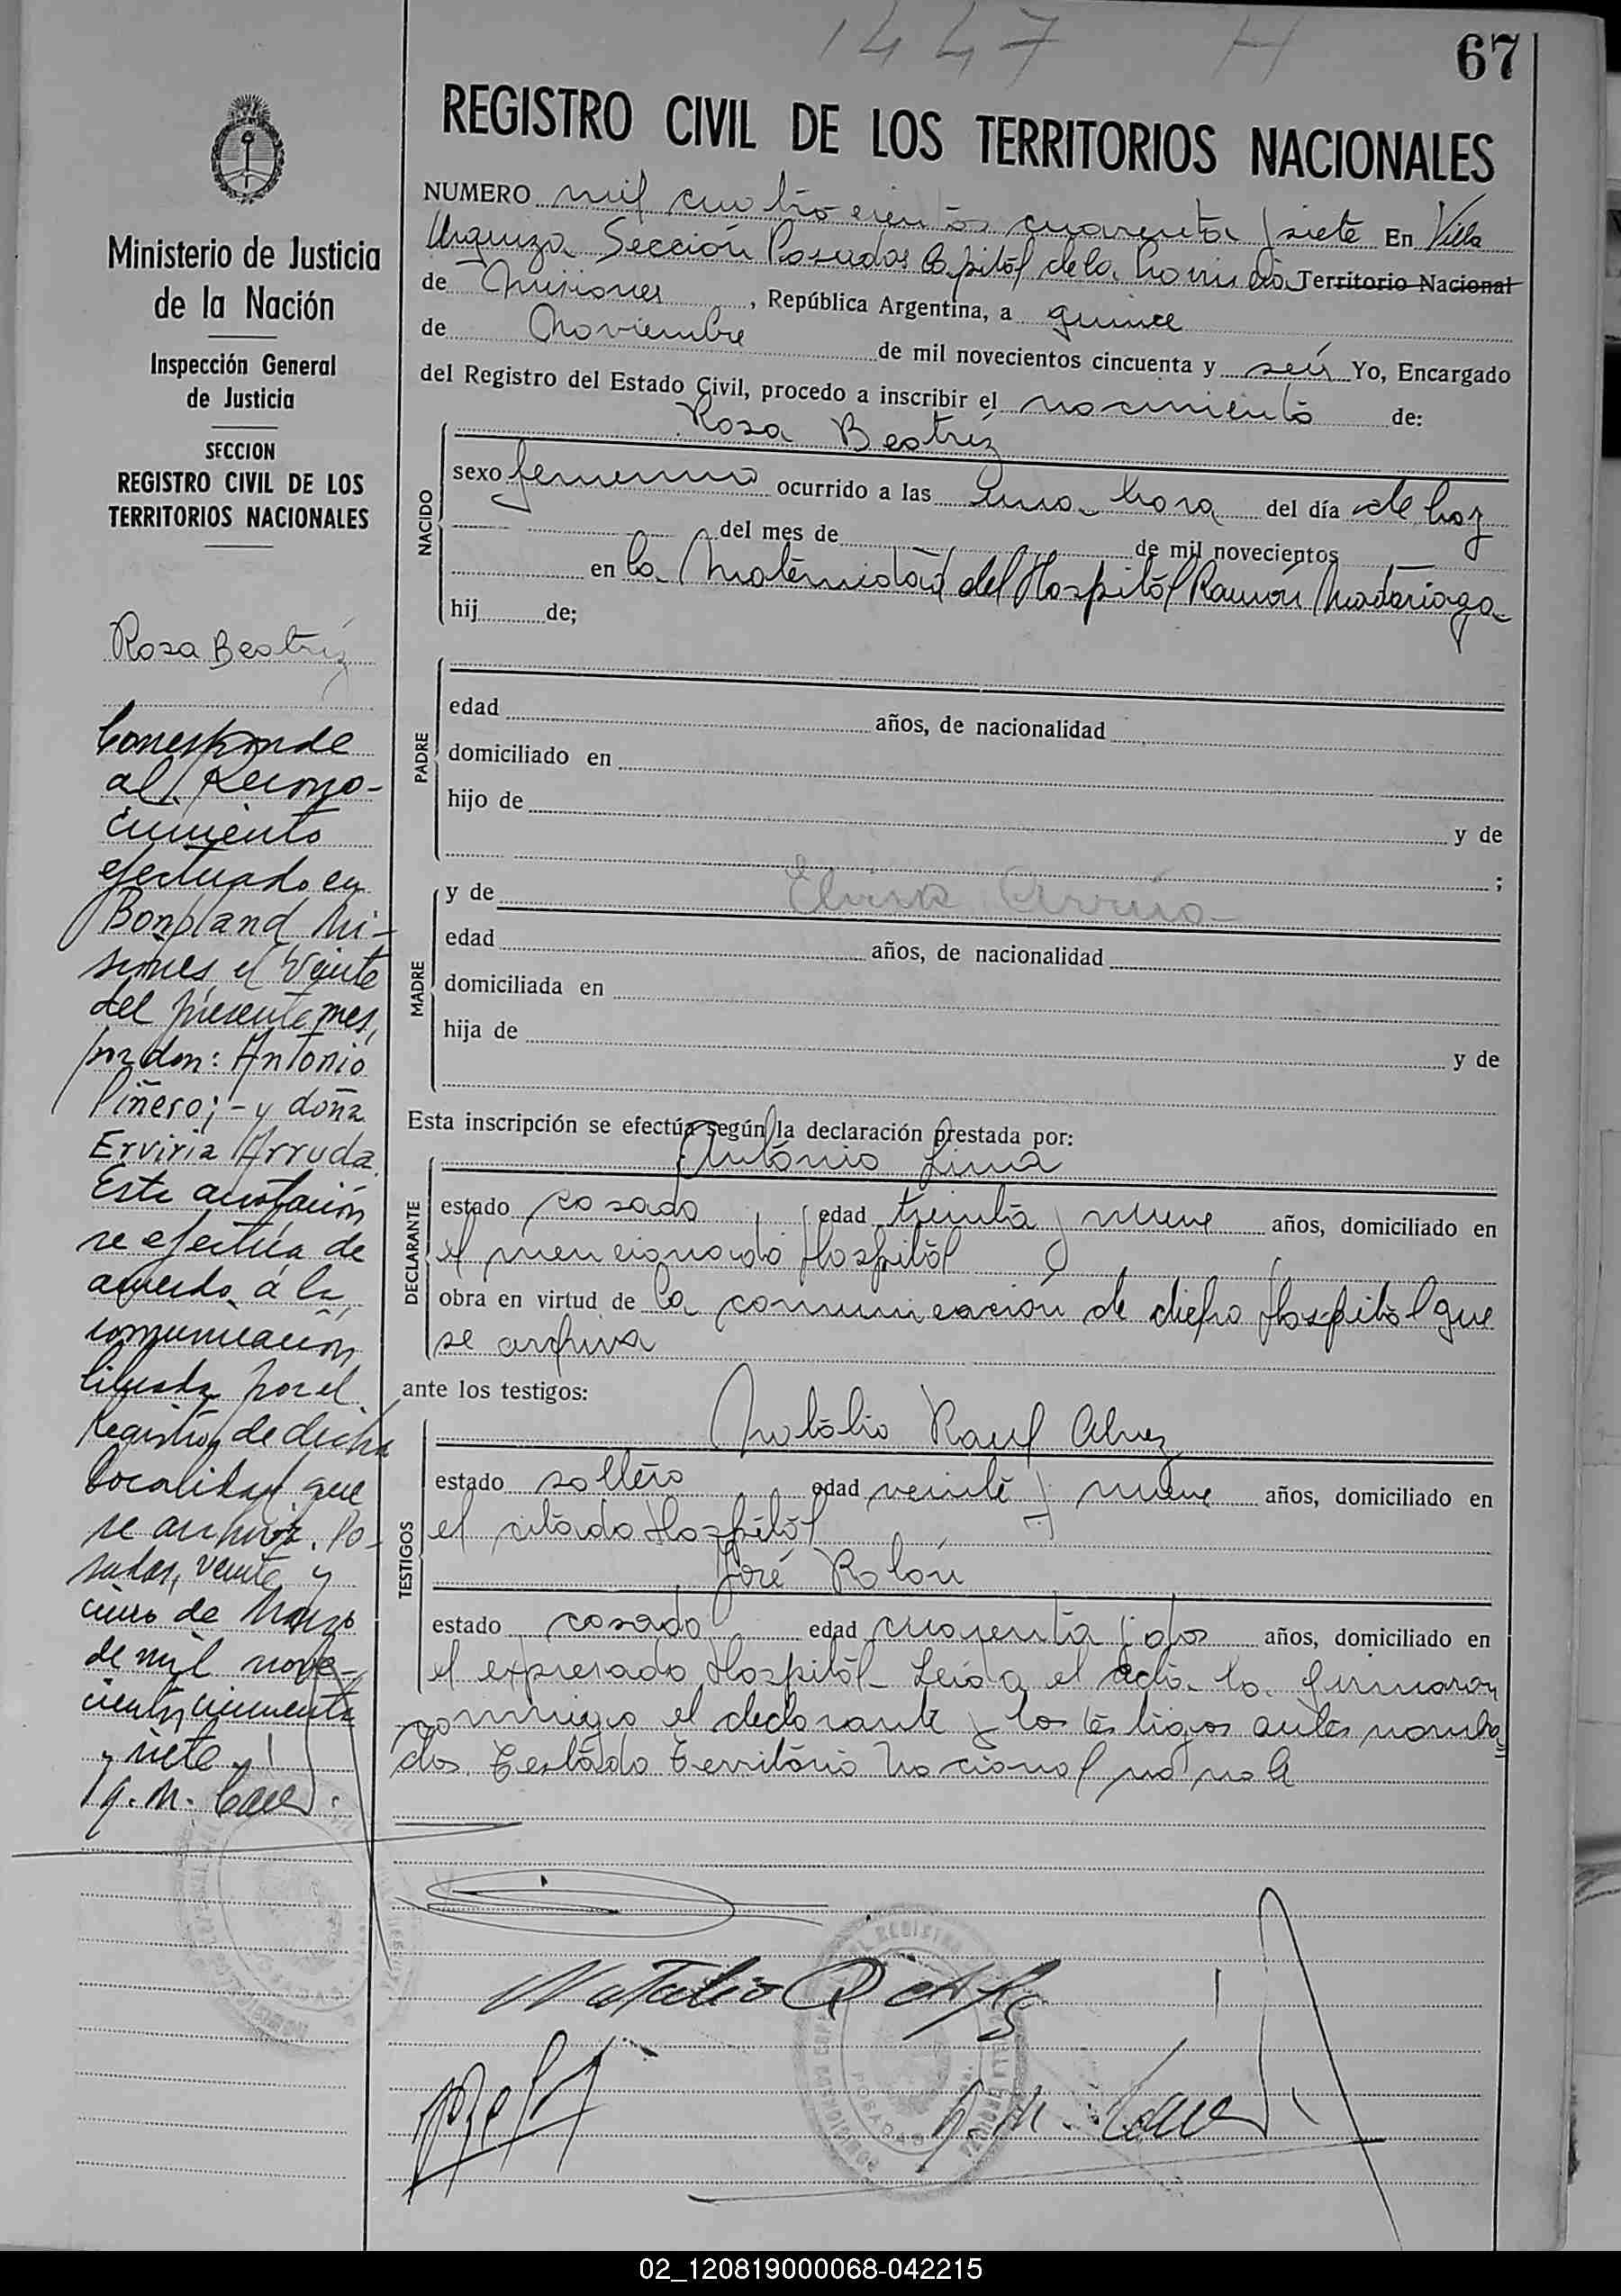 1447 H
67
REGISTRO CIVIL DE LOS TERRITORIOS NACIONALES
Ministerio de Justicia
de la Nación
Inspección General
de Justicia
SECCION
REGISTRO CIVIL DE LOS
TERRITORIOS NACIONALES
NUMERO mil cuatrocientos cuarenta y siete En Villa
Urquiza Sección Posadas Capital de la Provincia Territorio Nacional
de Misiones, República Argentina, a quince
de Noviembre de mil novecientos cincuenta y seis Yo, Encargado
del Registro del Estado Civil, procedo a inscribir el nacimiento de:
NACIDO
Rosa Beatriz
sexo femenino ocurrido a las una hora del día de hoy
del mes de de mil novecientos
en la Maternidad del Hospital Ramón Madariaga
hij de;
PADRE
edad años, de nacionalidad
domiciliado en
hijo de y de
;
MADRE
y de Elvira Arrúa
edad años, de nacionalidad
domiciliada en
hija de y de
Esta inscripción se efectúa según la declaración prestada por:
DECLARANTE
Antonio Lima
estado casado edad treinta y nueve años, domiciliado en
el mencionado Hospital
obra en virtud de la comunicación de dicho Hospital que
se archiva
ante los testigos:
TESTIGOS
Natalio Raul Alvez
estado soltero edad veinte y nueve años, domiciliado en
el citado Hospital
José Rolón
estado casado edad cuarenta y dos años, domiciliado en
el expresado Hospital - Leída el acta la firmaron
conmigo el declarante y los testigos antes nombra=
dos. Testado Territorio Nacional no vale
Rosa Beatríz
Corresponde
al Recono-
cimiento
efectuado en
Bonpland Mi-
siones, el veinte
del presente mes,
por don: Antonio
Piñero;- y doña
Erviria Arruda.
Esta anotación
se efectúa de
acuerdo a la
comunicación
librada por el
Registro de dicha
localidad que
se archiva. Po-
sadas, veinte y
cinco de Marzo
de mil nove-
cientos cincuenta
y siete
02_120819000068-042215